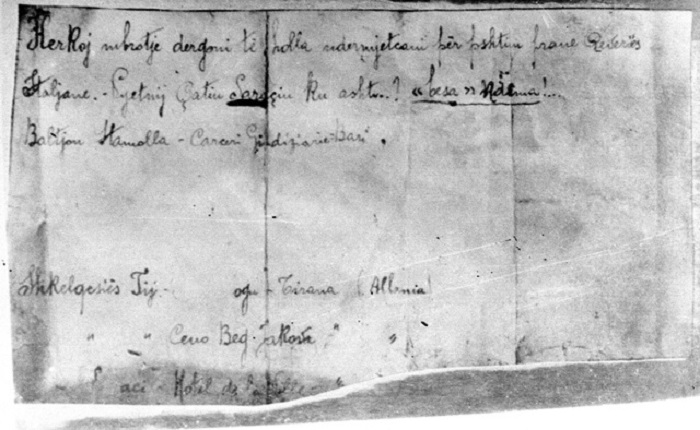 Kerkoj mbrotje dergoni të holla ndermjetcani për pshtim prane Qeveriës
Italjane. - Pyetnij Çatin Saraçin ku asht...? « besa » Nδëma!...
Batijon Hamolla - Carceri Giudiziarie - Bari.
Shkelqesiës Tij. - ogu - Tirana (Albania)
" " Ceno Beg - Jakova " "
aci - Hotel de